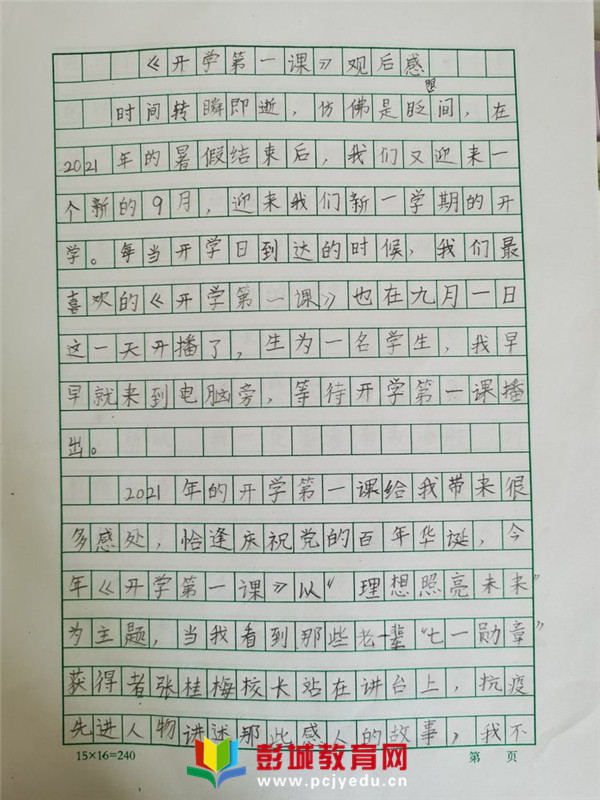 《开学第一课》观后感
时间转瞬即逝，仿佛是眨眼间，在
2021年的暑假结束后，我们又迎来一
个新的9月，迎来我们新一学期的开
学。每当开学日到达的时候，我们最
喜欢的《开学第一课》也在九月一日
这一天开播了，生为一名学生，我早
早就来到电脑旁，等待开学第一课播
出。
2021年的开学第一课给我带来很
多感处，恰逢庆祝党的百年华诞，今
年《开学第一课》以“理想照亮未来”
为主题，当我看到那些老一辈“七一勋章”
获得者张桂梅校长站在讲台上，抗疫
先进人物讲述那些感人的故事，我不
15×16=240
第 页
彭城教育网
www.pcjyedu.cn